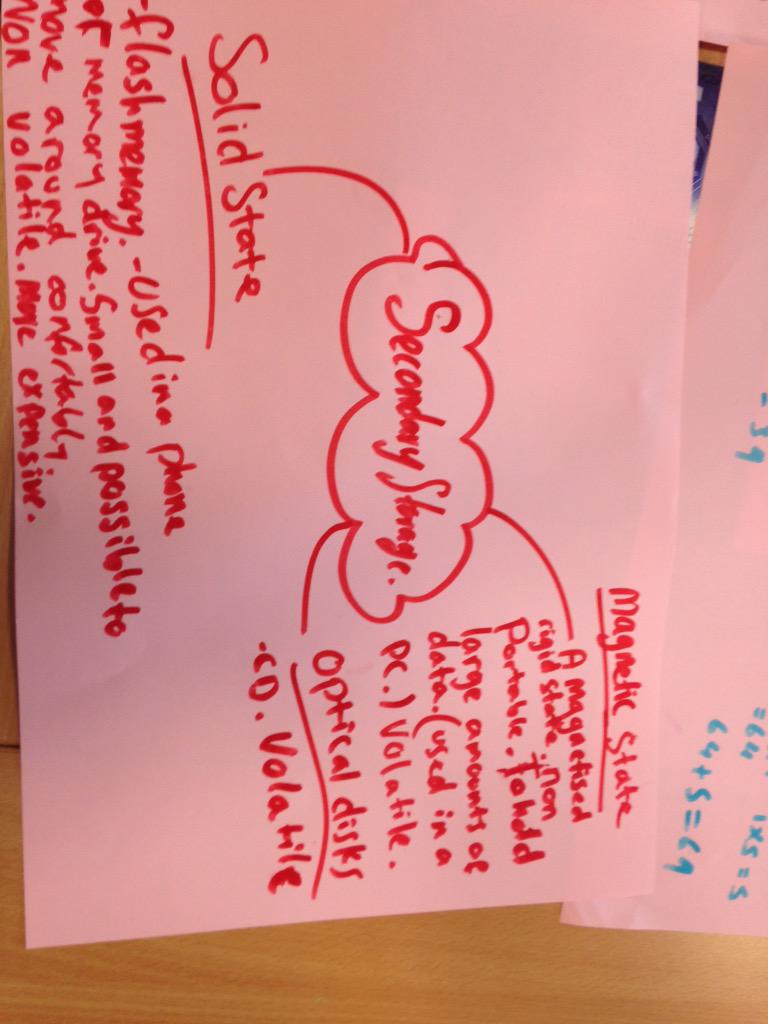 Secondary Storage.
Solid State
-flash memory. -Used in a phone
of memory drive. Small and possible to
move around confortably
Non volatile. More expensive.
Magnetic State
A magnetised
rigid state. non
Portable. To hold
large amounts of
data. (used in a
PC.) Volatile.
Optical disks
-CD. Volatile
-39
=64 1x5=5
64+5=69